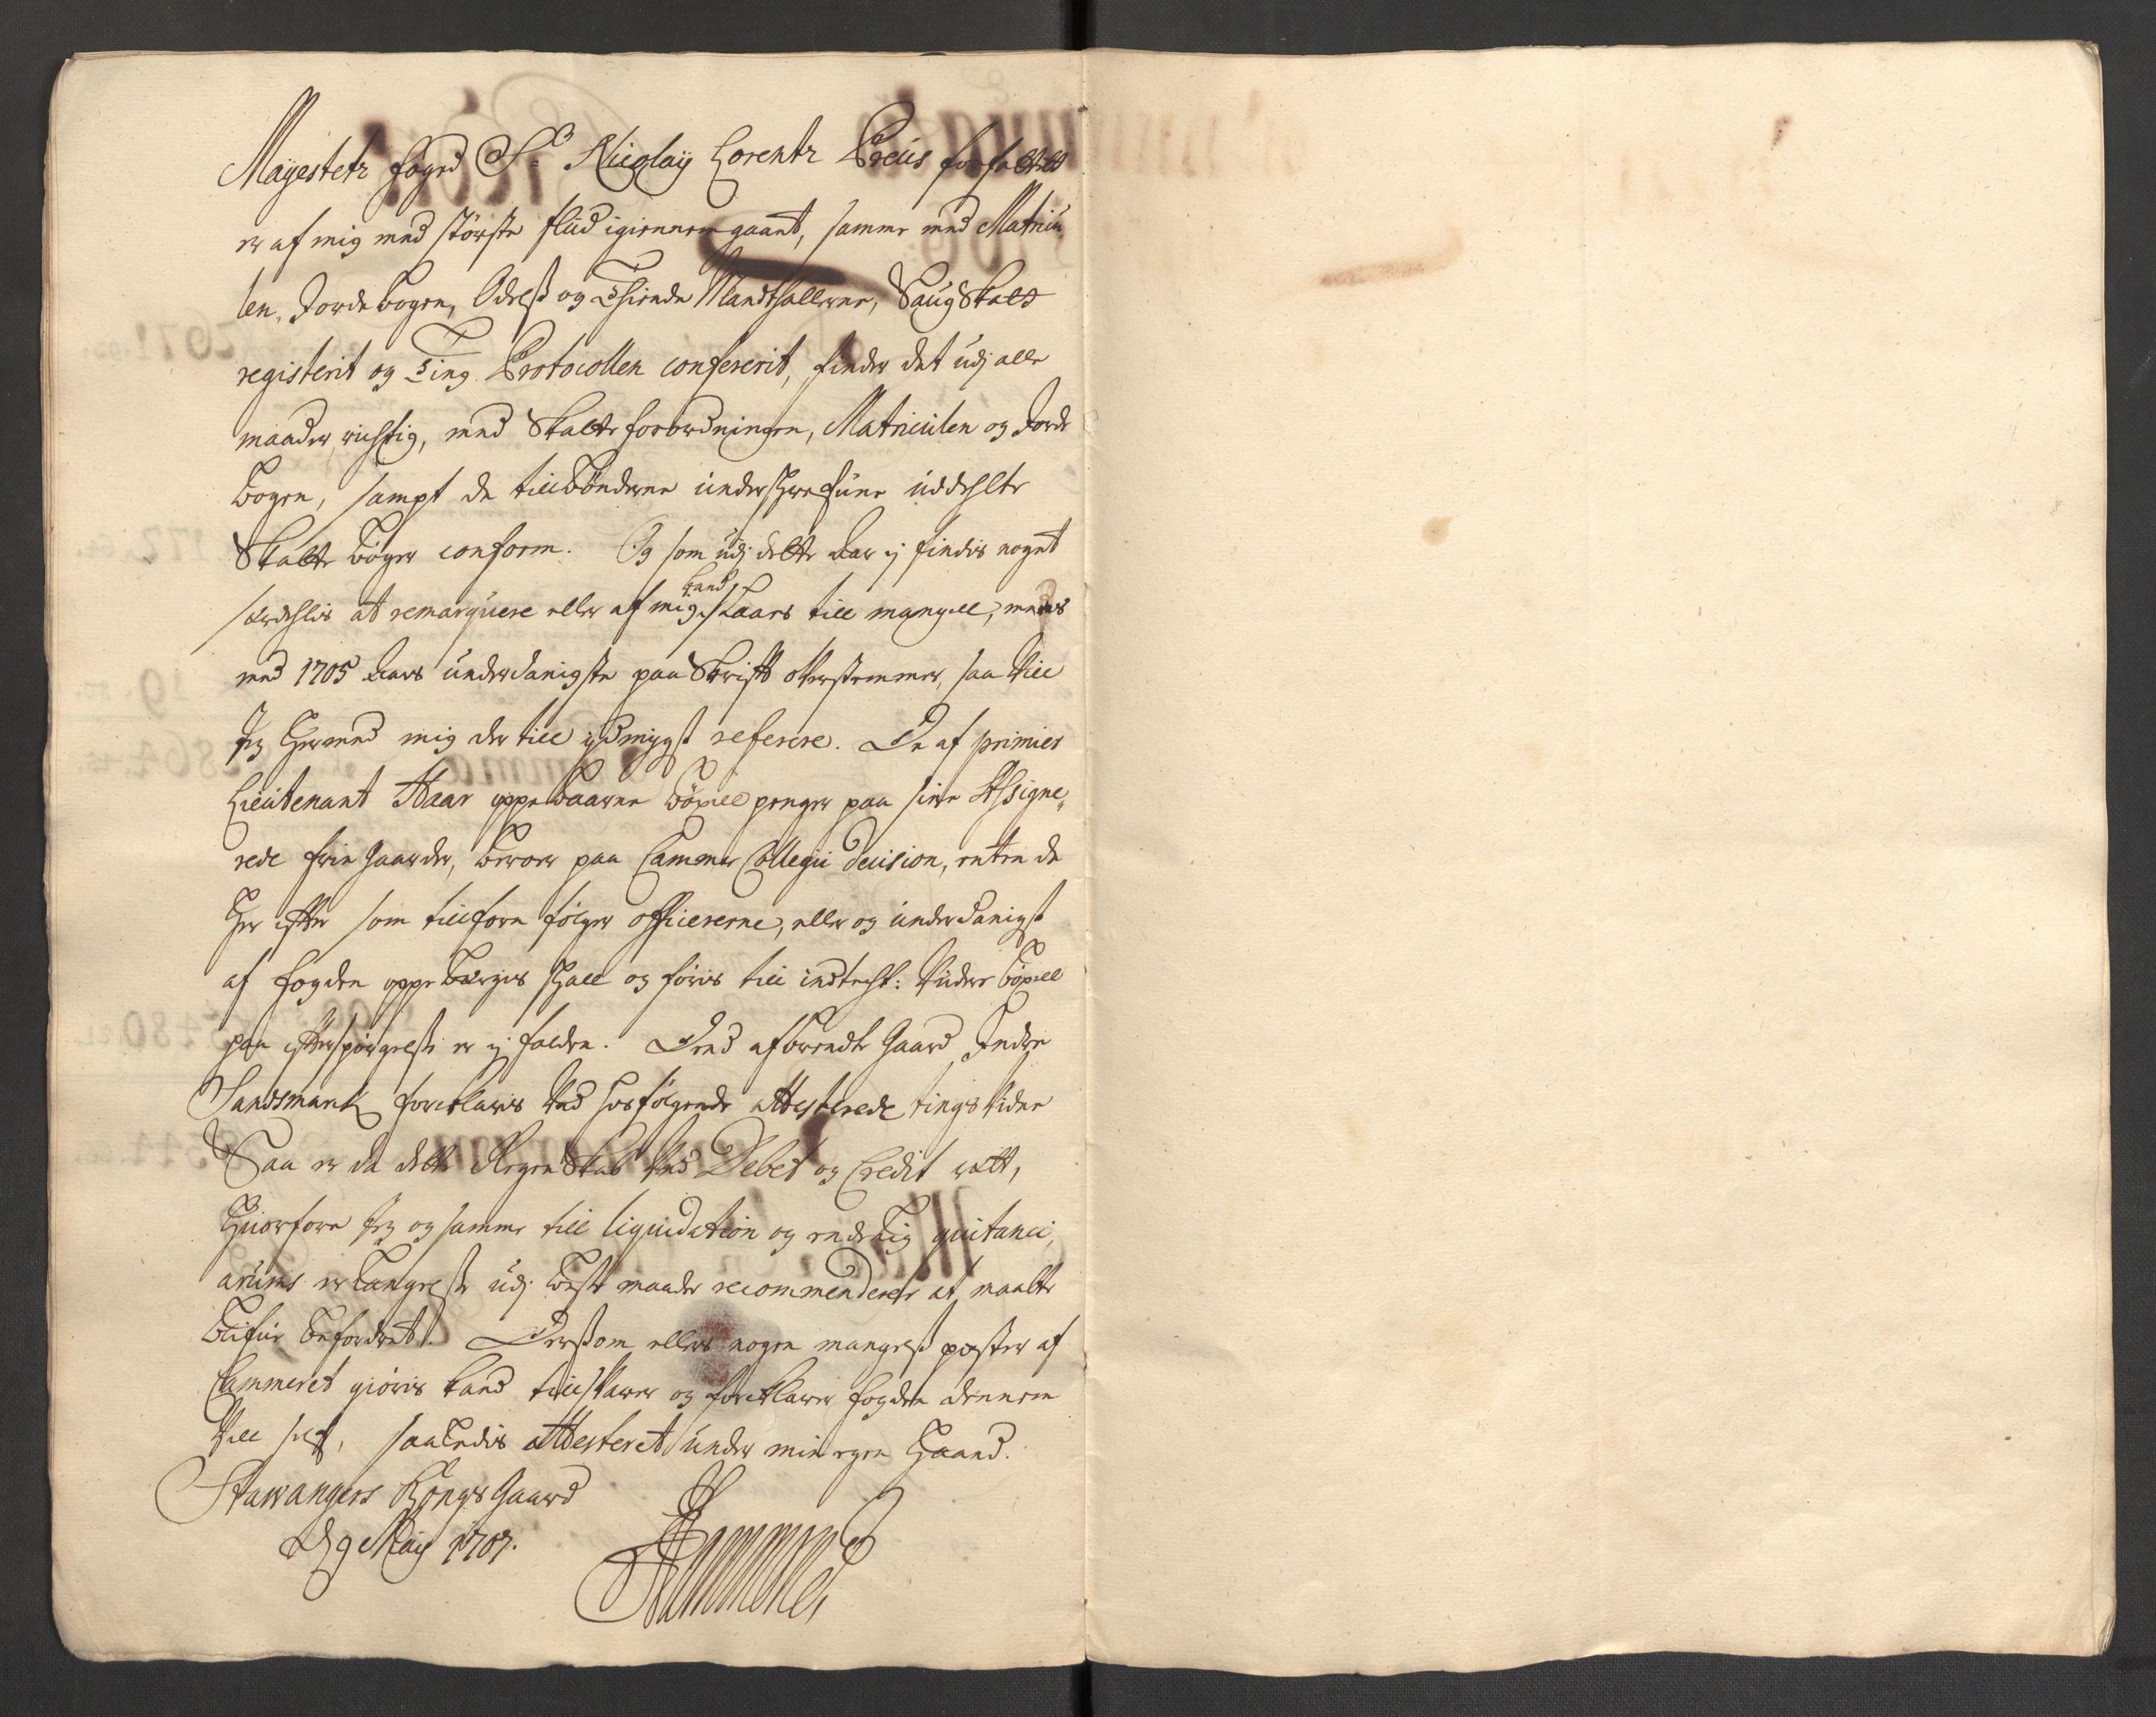 Mayestetz foged Sr Nicolaÿ Lorentz Preüs forfattet
er af mig med störste fliid igiennemgaaet, samme med Matricu,
len, Jordebogen, Odelß og Thiende Mandtallerne, Saugskatt
registerit og Ting Protocollen confererit, finder det udj alle
maader rigtig, med Skatteforordningen, Matriculen og Jorde
bogen, sampt de till bönderne underskrefune uddehlte
Skatte böger conform. Og som udj dette Aar ej findis noget
særdehlis at remarquere eller af mig kand staars till mangell, mens
med 1705 Aars underdanigste paa Skrifft offverstemmer, saa vill
Jeg hermed mig der till ydmygst referere. De af premier
Lieutenant Haar oppebaarne böxell penger paa sine Assigne,
rede frie gaarder, beroer paa Cammer Collegii decision, enten de
her effter som tillforn fölger officererne, eller og underdanigst
af fogden oppebærges skall og föris till indtegt: Videre böxell
paa effterspörgelse er ej falden. Dend afbrendte gaard Indre
Sandsmark forklaris ved hosfölgende attesterede tings vidne
Saa er da dette Regenskab ved Debet og Credit rett,
Huorfore Jeg og samme till liquidation og endelig quitanci,
arums erlangelse udj beste maade recommenderer at maatte
blifue befordret. Dersom ellers nogen mangelß poster af
Cammeret giöris kand till svarer og forklarer fogden dennem
vell self, saaledis attesteret under min egen Haand.
Stawangers Kongs Gaard
D 9 Maÿ 1707.